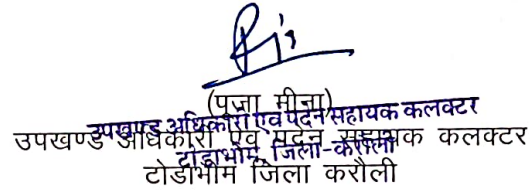 (पूजा मीना)
उपखण्ड अधिकारी एवं पदेन सहायक कलक्टर
टोडाभीम, जिला-करौली
उपखण्ड अधिकारी एवं पदेन सहायक कलक्टर
टोडाभीम जिला करौली